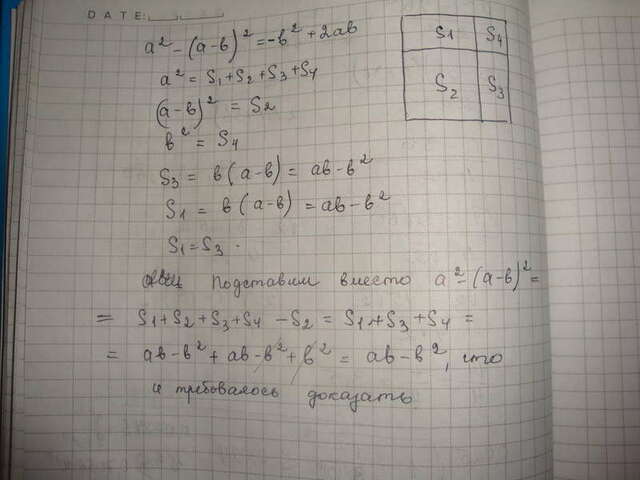 DATE:
a² - (a-в)² = -в² + 2ab
a² = S₁ + S₂ + S₃ + S₄
(a-в)² = S₂
в² = S₄
S₃ = в(a-в) = aв - в²
S₁ = в(a-в) = aв - в²
S₁ = S₃.
S1 S4
S₂ S₃
Подставим вместо a² - (a-в)² =
= S₁ + S₂ + S₃ + S₄ - S₂ = S₁ + S₃ + S₄ =
= aв - в² + aв - в² + в² = aв - в², что
и требовалось доказать